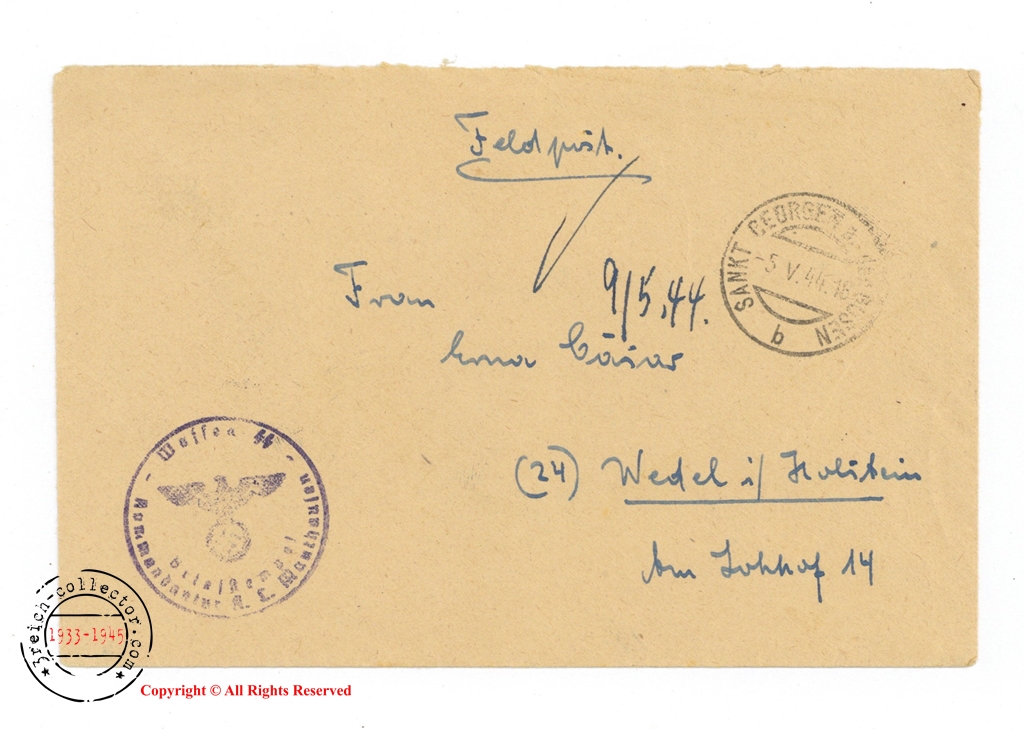 Feldpost.
SANKT GEORGEN a. d. GUSEN
-5.V.44.16
b
Frau
9/5.44.
Erna Cäsar
(24) Wedel i/ Holstein
Am Lohhof 14
Waffen SS
Kommandantur K. L. Mauthausen
Briefstempel
3reich-collector.com
1933-1945
Copyright © All Rights Reserved